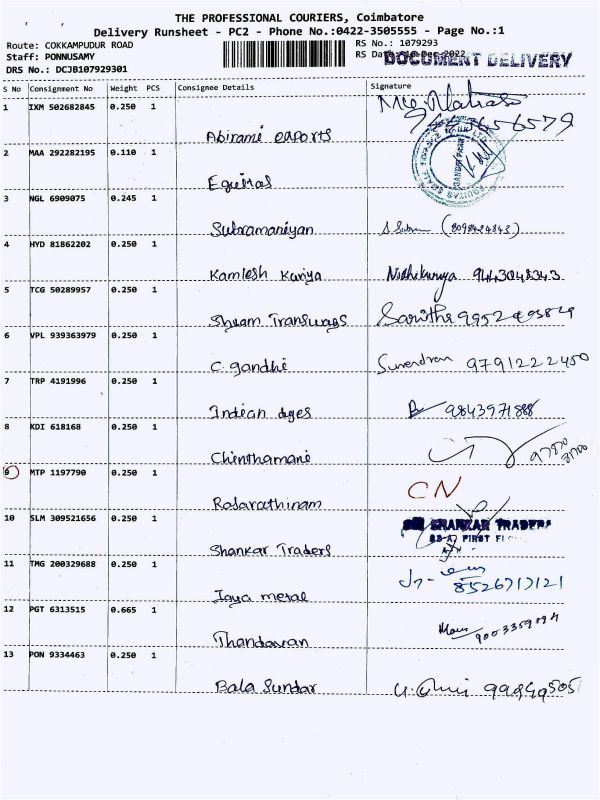 THE PROFESSIONAL COURIERS, Coimbatore
Delivery Runsheet - PC2 - Phone No.:0422-3505555 - Page No.:1
Route: COKKAMPUDUR ROAD
Staff: PONNUSAMY
DRS No.: DCJB107929301
RS No.: 1079293
RS Date: 10-Dec-2022
DOCUMENT DELIVERY
S No Consignment No Weight PCS Consignee Details Signature
1 IXM 502682845 0.250 1
Abirami exports
2 MAA 292282195 0.110 1
Equitas
3 NGL 6909075 0.245 1
Subramaniyan
4 HYD 81862202 0.250 1
Kamlesh Kuriya 9443048343
5 TCG 50289957 0.250 1
Shyam Transways Saritha
6 VPL 939363979 0.250 1
C. gandhi Surendran 9791222450
7 TRP 4191996 0.250 1
Indian dyes 9843971888
8 KDI 618168 0.250 1
Chinthamani
9 MTP 1197790 0.250 1
Rasarathinam CN
10 SLM 309521656 0.250 1
SHANKAR TRADERS
FIRST
Shankar Traders
11 TMG 200329688 0.250 1
Jaya metal 8526717121
12 PGT 6313515 0.665 1
Thandavan
13 PON 9334463 0.250 1
Bala Sundar